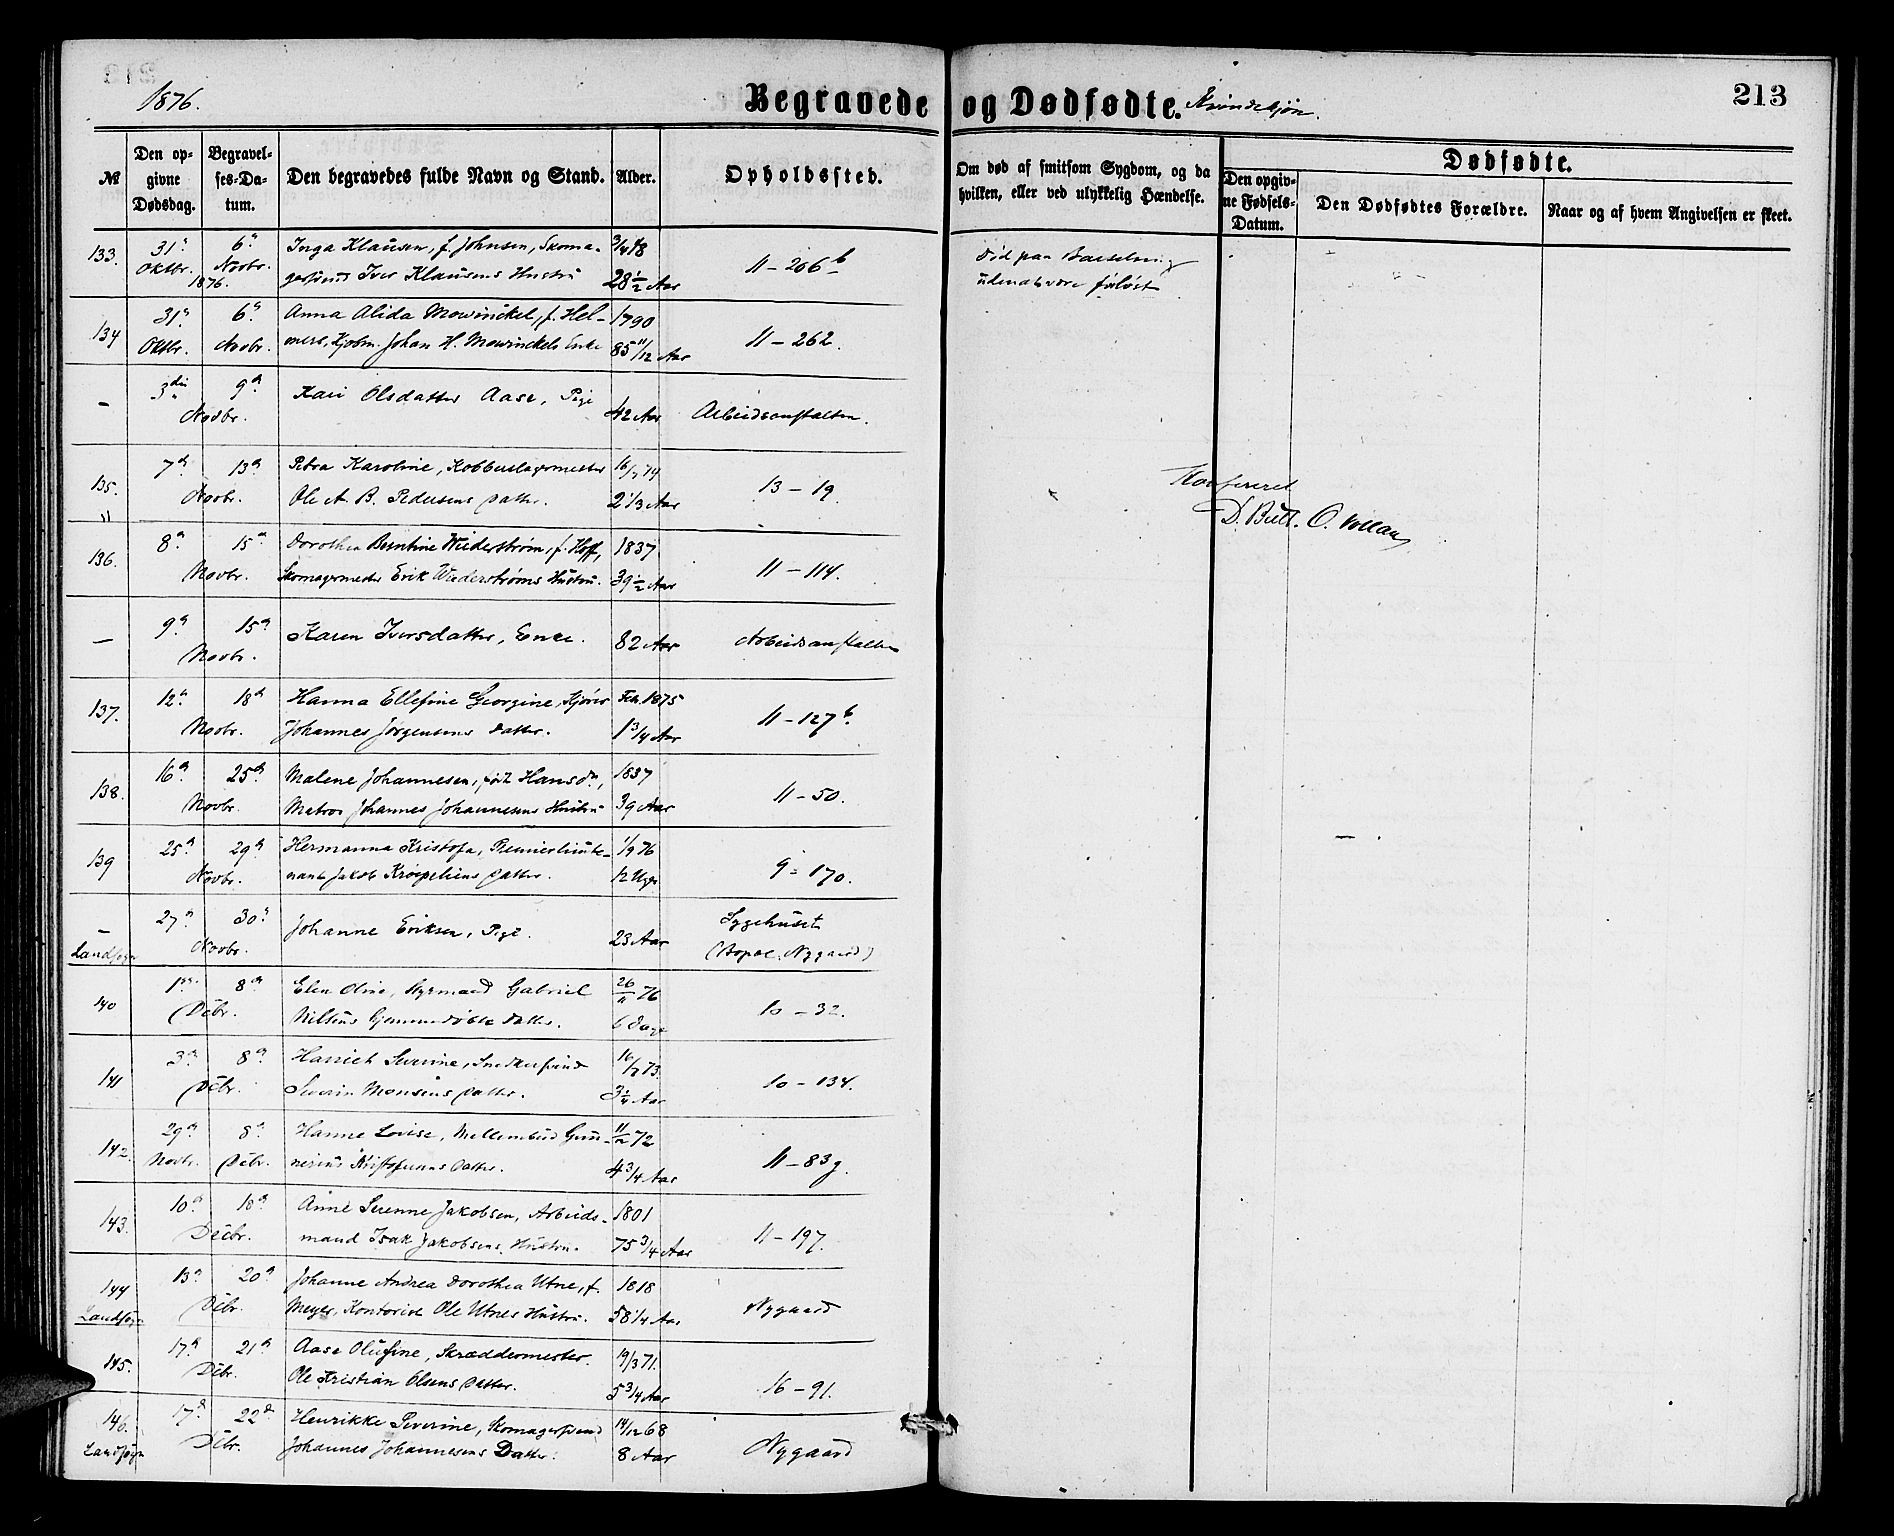 213
1876.
Begravede og Dødfødte. Kvindekjøn.
№
Den opgivne Dødsdag.
Begravelses-Datum.
Den begravedes fulde Navn og Stand.
Alder.
Opholdssted.
Om død af smitsom Sygdom, og da hvilken, eller ved ulykkelig Hændelse.
Dødfødte.
Den opgivne Fødsels-Datum.
Den Dødfødtes Forældre.
Naar og af hvem Angivelsen er skeet.
133. 31 Oktbr. 6 Novbr. 1876. Inga Klausen, f. Johnsen, Skoma-
gersvend Iver Klausens Hustru 28 1/2 Aar 11 – 206 b Død paa Barselseng
uden at være forløst
134 31 Oktbr. 6 Novbr. Anna Alida Mowinckel, f. Hel- 1790
mers, Kjøbm. Johan H. Mowinckels Enke 85 11/12 Aar 11 – 262.
– 3die 9d Novbr. Kari Olsdatter Aase, Pige 42 Aar Arbeidsanstalten.
135. 7d 13d Novbr. Petra Karoline, Kobberslagermester 16/7 74
Ole A. B. Pedersens Datter. 2 1/3 Aar 13 – 19.
Konfereret
D. Butt. O. Vollan
136. 8d 15d Novbr. Dorothea Berntine Wiederstrøm, f. Hoff, 1837
Skomagermester Erik Wiederstrøms Hustru. 39 1/2 Aar 11 – 114.
– 9d 15d Novbr. Karen Iversdatter, Enke. 82 Aar Arbeidsanstalten
137. 12d 18d Novbr. Hanna Ellefine Georgine, Kjører Feb. 1875
Johannes Jørgensens Datter. 1 3/4 Aar 11 – 127 b.
138. 16d 25d Novbr. Malene Johannesen, født Hansdr, 1837
Matros Johannes Johannesens Hustru 39 Aar 11 – 50.
139 25d 29d Novbr. Hermanna Kristofa, Premierliute- 1/9 76
nant Jakob Krøepeliens Datter. 12 Uger 9 – 170.
– Landsogn 27d 30d Novbr. Johanne Eriksen, Pige. 23 Aar Sygehuset
(Bopæl: Nygaard)
140 1ste 8d Dcbr. Elen Oline, Styrmand Gabriel 26/11 76
Nilsens hjemmedøbte Datter. 6 Dage 10 – 32.
141 3d 8d Dcbr. Harriet Severine, Snedkersvend 16/7 73.
Severin Monsens Datter. 3 1/4 Aar 10 – 134.
142. 29d Novbr. 8d Dcbr. Hanne Lovise, Mellembud Gun- 72
nerius Kristofersens Datter. 4 3/4 Aar 11 – 83
143. 10d 18d Decbr. Anne Serenne Jakobsen, Arbeids- 1801
mand Isak Jakobsens Hustru. 75 3/4 Aar 11 – 197.
144 Landsogn 13d 20d Dcbr. Johanne Andrea Dorothea Utne, f. 1818
Meyer, Kontorist Ole Utnes Hustru. 58 1/4 Aar Nygaard
145. 17d 21d Dcbr. Aase Olufine, Skræddermester 19/3 71.
Ole Kristian Olsens Datter. 5 3/4 Aar 16 – 91.
146. Landsogn 17d 22d Dcbr. Henrikke Severine, Skomagersvend 14/12 68
Johannes Johannesens Datter. 8 Aar Nygaard